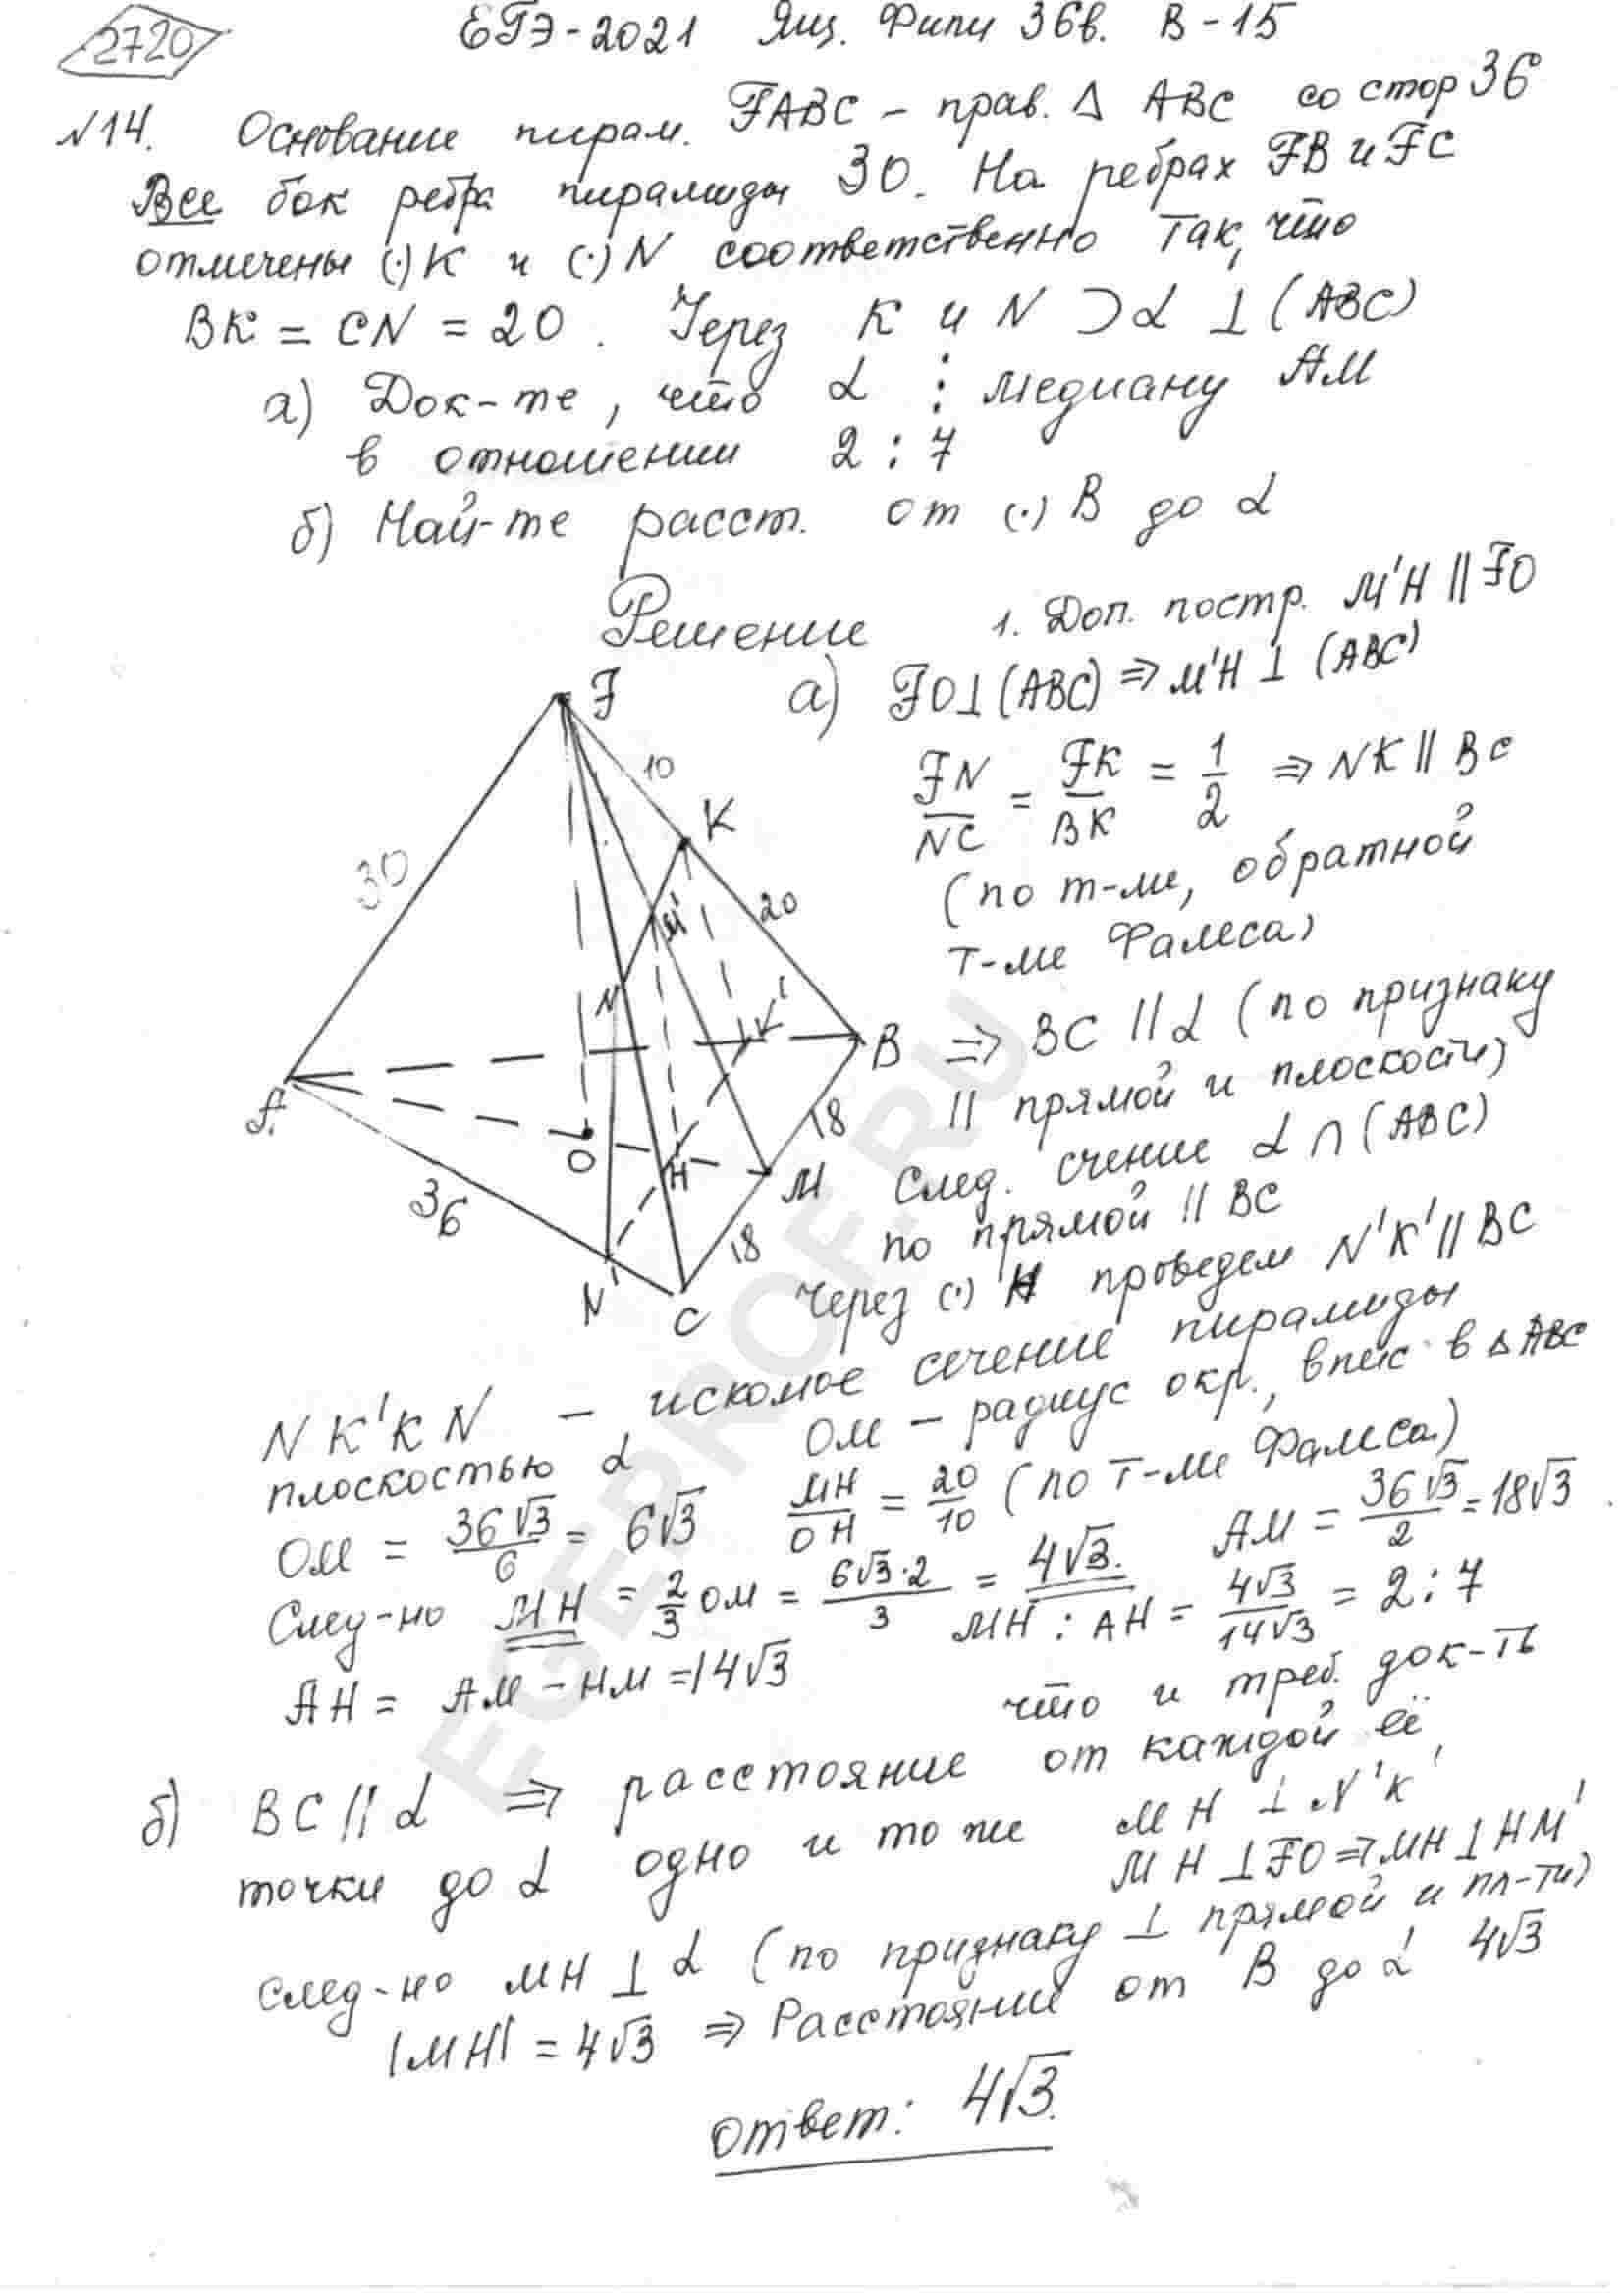 2720
ЕГЭ-2021 Ящ. Фипи 36в. В-15
№14. Основание пирам. FABC – прав. Δ ABC со стор 36
Все бок ребра пирамиды 30. На ребрах FB и FC
отмечены (·)K и (·)N соответственно так, что
BK = CN = 20. Через K и N ⊃ α ⊥ (ABC)
а) Док-те, что α ⋮ медиану AM
в отношении 2 : 7
б) Най-те расст. от (·) B до α
Решение
1. Доп. постр. M'H || FO
а) FO⊥(ABC) ⇒ M'H ⊥ (ABC)
FN/NC = FK/BK = 1/2 ⇒ NK || BC
(по т-ме, обратной
т-ме Фалеса)
⇒ BC || α (по признаку
|| прямой и плоскости)
След. сечение α ∩ (ABC)
по прямой || BC
Через (·) H проведем N'K' || BC
F
10
K
30
20
M'
N
K'
B
A
O
H
M
18
36
18
N'
C
NK'KN – искомое сечение пирамиды
плоскостью α OM – радиус окр., впис в Δ ABC
OM = 36√3/6 = 6√3 MH/OH = 20/10 (по т-ме Фалеса) AM = 36√3/2 = 18√3
След-но MH = 2/3 OM = 6√3·2/3 = 4√3. MH : AH = 4√3/14√3 = 2:7
AH = AM – HM = 14√3
что и треб. док-ть
б) BC || α ⇒ расстояние от каждой её
точки до α одно и то же MH ⊥ N'K'
MH ⊥ FO ⇒ MH ⊥ HM'
след-но MH ⊥ α (по признаку ⊥ прямой и пл-ти)
|MH| = 4√3 ⇒ Расстояние от B до α 4√3
ответ: 4√3.
EGEPROF.RU